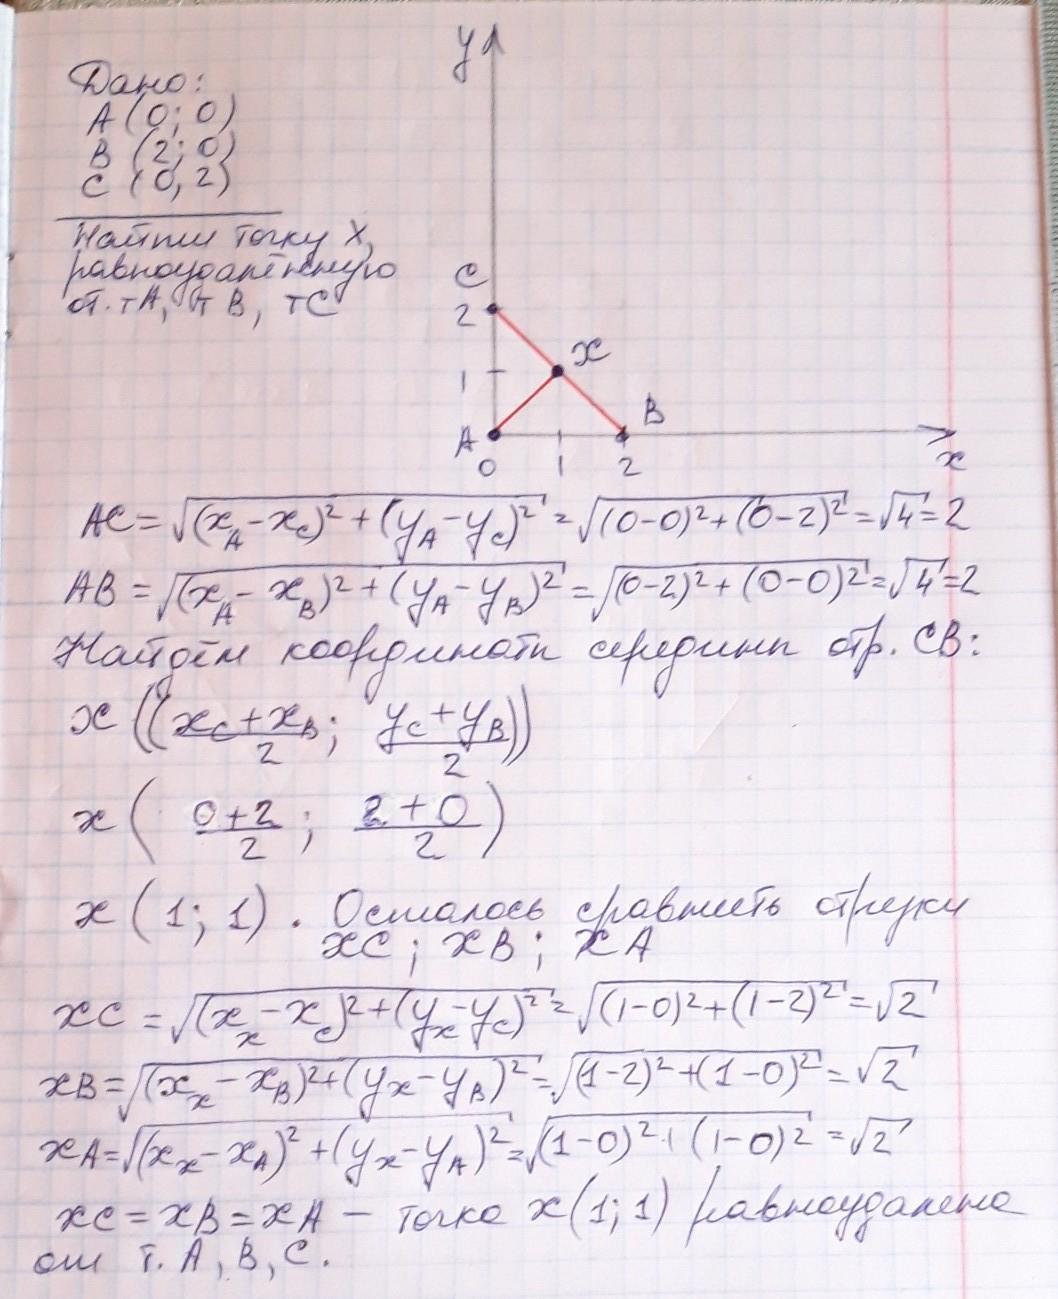 Дано:
A (0; 0)
B (2; 0)
C (0, 2)
Найти точку X,
равноудалённую
от. тA, т B, тC
y
C
2
X
1
B
A
0
1
2
x
AC = √(x_A - x_C)² + (y_A - y_C)² = √(0-0)² + (0-2)² = √4 = 2
AB = √(x_A - x_B)² + (y_A - y_B)² = √(0-2)² + (0-0)² = √4 = 2
Найдём координаты середины отр. CB:
x ((x_C + x_B)/2 ; (y_C + y_B)/2)
x ( (0+2)/2 ; (2+0)/2 )
x (1; 1). Осталось сравнить отрезки
xC; xB; xA
xC = √(x_x - x_C)² + (y_x - y_C)² = √(1-0)² + (1-2)² = √2
xB = √(x_x - x_B)² + (y_x - y_B)² = √(1-2)² + (1-0)² = √2
xA = √(x_x - x_A)² + (y_x - y_A)² = √(1-0)² + (1-0)² = √2
xC = xB = xA — точка x(1; 1) равноудалена
от т. A, B, C.